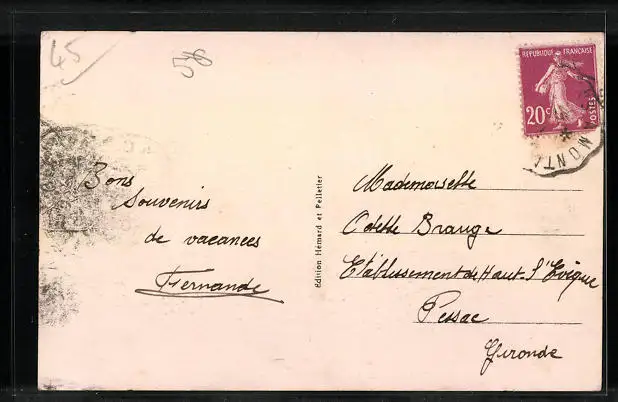 45
58
REPUBLIQUE FRANÇAISE
20c
POSTES
MONT
Bons
Souvenirs
de vacances
Fernande
Edition Hémard et Pelletier
Mademoiselle
Odette Brange
Etablissement de Haut-l'Evêque
Pessac
Gironde